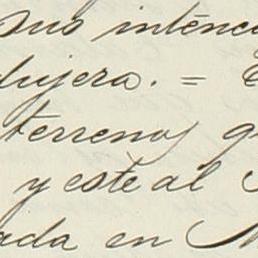 sus intenc
dujera. =
terrenos q
y este al
ada en